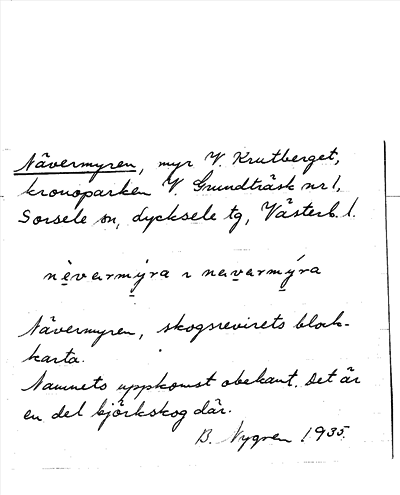 Nävermyren, myr V. Krutberget,
kronoparken V. Grundträsk nr 1,
Sorsele sn, Lycksele tg, Västerb. l.
nèvarmýra ı navarmýra
Nävermyren, skogsrevirets block-
karta.
Namnets uppkomst obekant. Det är
en del björkskog där.
B. Nygren 1935.